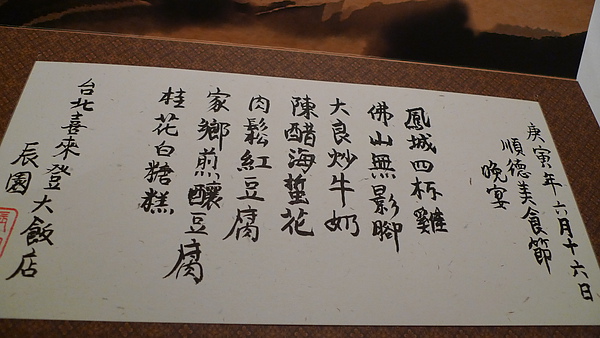 庚寅年六月十六日
順德美食節
晚宴
鳳城四杯雞
佛山無影腳
大良炒牛奶
陳醋海蜇花
肉鬆紅豆腐
家鄉煎釀豆腐
桂花白糖糕
台北喜來登大飯店
辰園